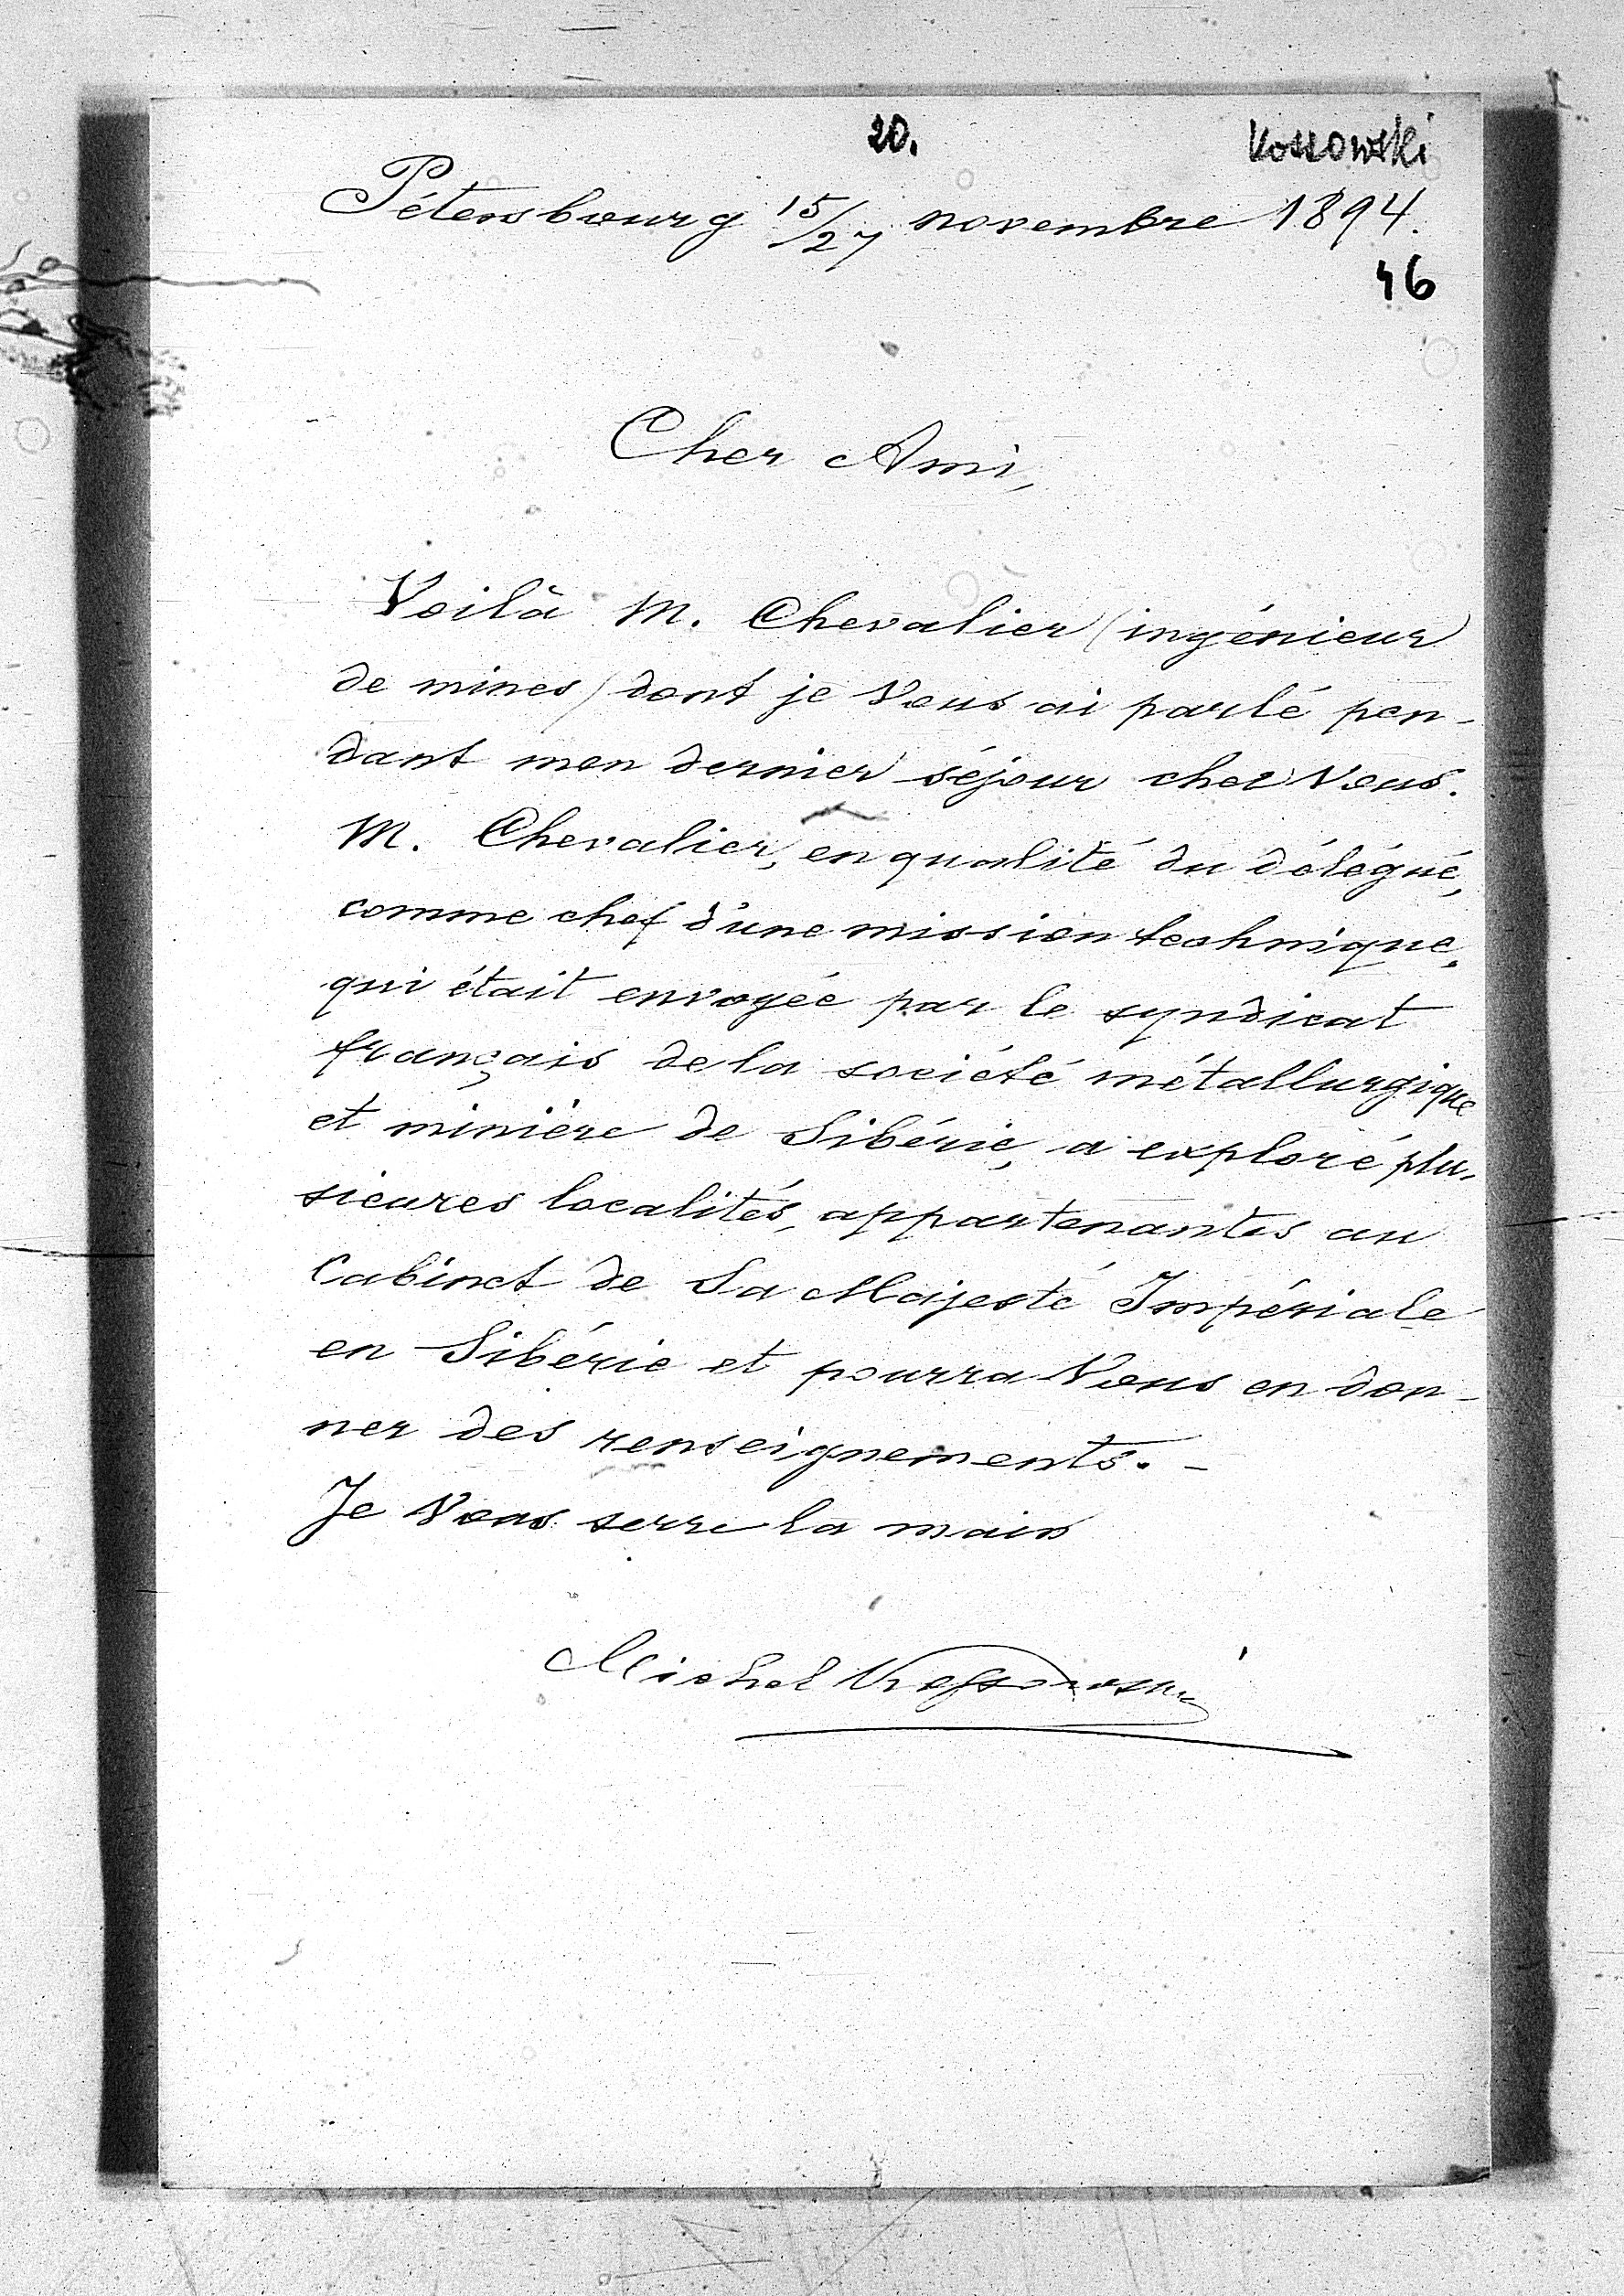 20.
Kossowski
Pétersbourg 15/27 novembre 1894.
46
Cher Ami,
Voilà M. Chevalier (ingénieur
de mines) dont je Vous ai parlé pen-
dant mon dernier séjour chez Vous.
M. Chevalier, en qualité du délégué,
comme chef d'une mission technique,
qui était envoyée par le syndicat
français de la société métallurgique
et minière de Sibérie, a exploré plu-
sieures localités, appartenantes au
Cabinet de Sa Majesté Impériale
en Sibérie et pourra Vous en don-
ner des renseignements. -
Je Vous serre la main
Michel Kossowski